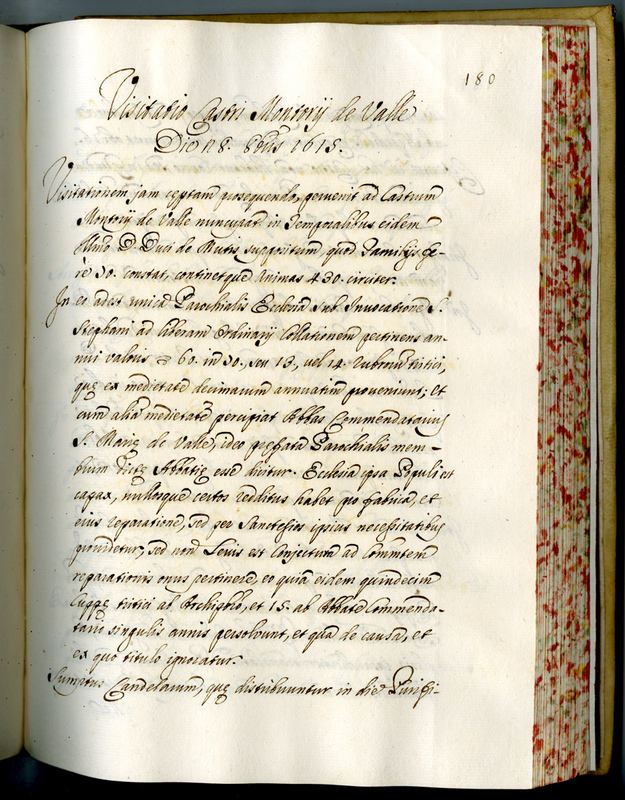 180
Visitatio Castri Montorij de Valle
Die 18. 8bris 1615.
Visitationem jam ceptam prosequendo, pervenit ad Castrum
Montorij de Valle nuncupat. in Temporalibus eidem
Illmo D. Duci de suppositum quod Familijs fe-
rè 90. constat, continetque Animas 430. circiter.
In eo adest unica Parochialis Ecclesia sub Invocatione S.
Stephani ad liberam Ordinarij Collationem pertinens an-
nui valoris 60. in 70., seu 13, vel 14. Rubrorum tritici,
quę ex medietate decimarum annuatim proveniunt; et
cum aliā medietatē percipiat Abbas Commendatarius
S. Marię de Valle, ideo pręfata Parochialis mem-
brum dictę Abbatię esse dicitur. Ecclesia ipsa Populi est
capax, nullosque certos redditus habet pro fabrica, et
eius reparatione, sed per Sanctesios ipsius necessitatibus
providetur, sed non levis est Conjectura ad Commtem
reparationis onus pertinere, eo quia eidem quindecim
Cuppę tritici ab Archipbro, et 15. ab Abbate Commenda-
tario singulis annis persolvunt, et qua de causa, et
ex quo titulo ignoratur.
Sumptus Candelarum, quę distribuuntur in die Purifi-